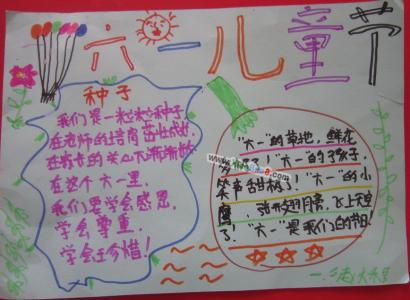 六一儿童节
种子
我们是一粒粒种子,
在老师的培育茁壮成长
在家长的关心下渐渐长
在这个六一里,
我们要学会感恩,
学会尊重,
学会珍惜!
"六一"的草地,鲜花
"六一"的孩子,
笑声甜极了!"六一"的小
鹰,张开翅膀,飞上天空
了!"六一"是我们的节日!